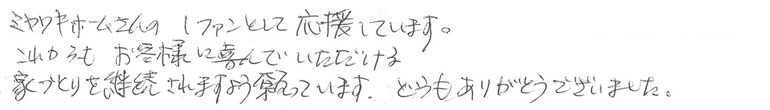 ミヤワキホームさんの 1ファンとして応援しています。
これからも お客様に喜んでいただける
家づくりを継続されますよう願っています。どうもありがとうございました。